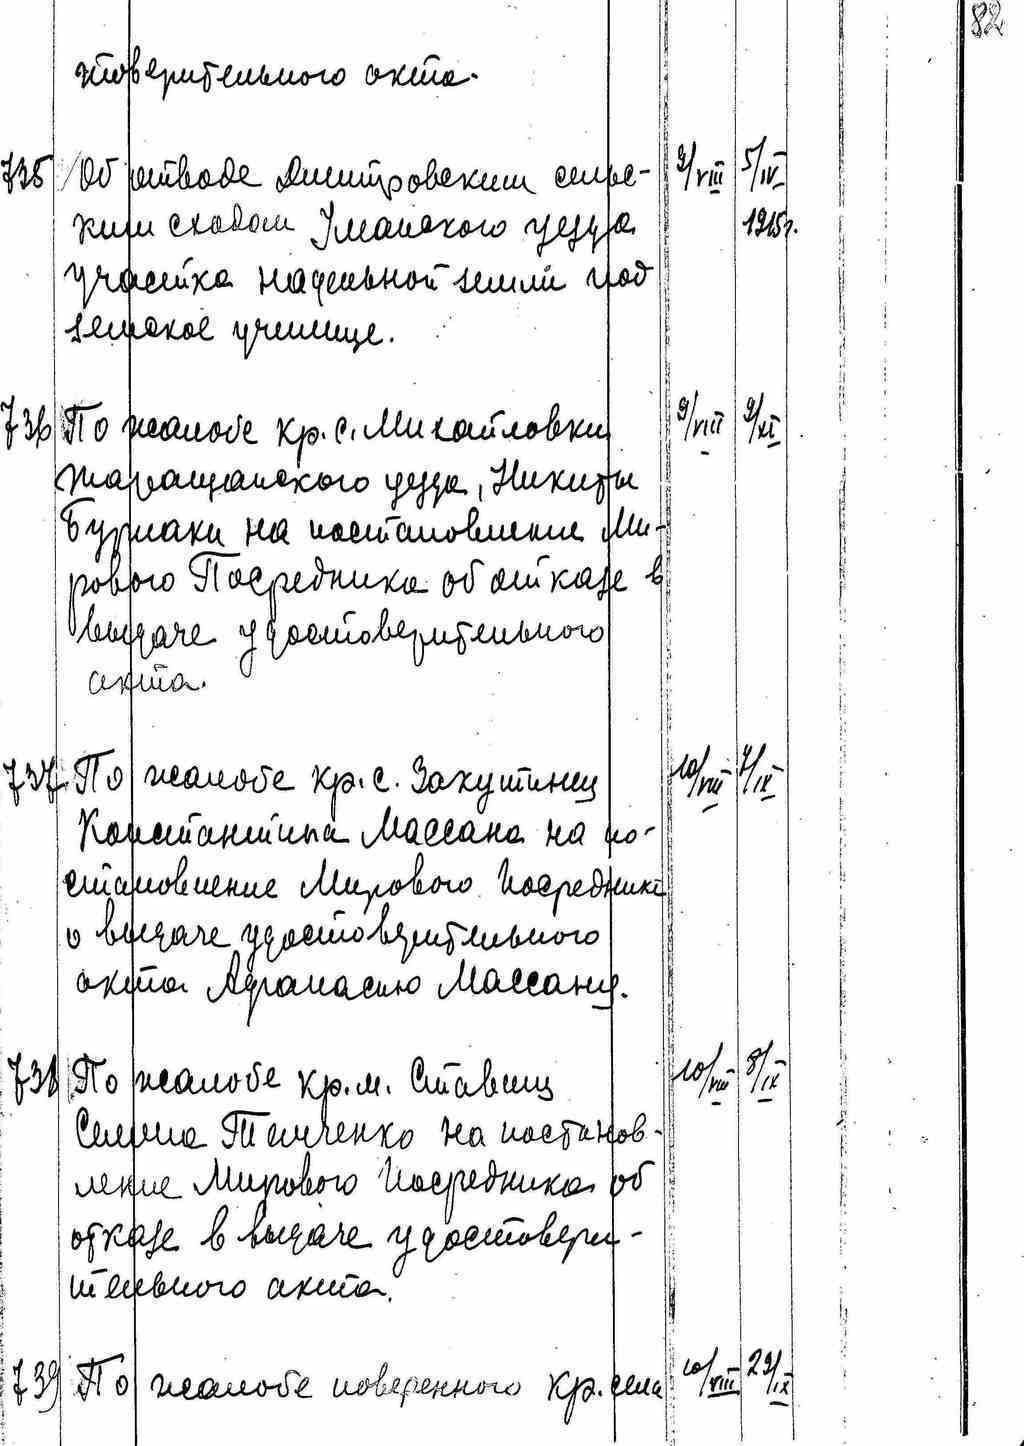 82
стоверительного акта.
735 Об отводе Дмитровским сельс- 9/VIII 5/IV
ким сходом Уманского уезда 1915г.
участка надельной земли под
земское училище.
736 По жалобе кр. с. Михайловки 9/VIII 9/XI
Таращанского уезда, Никиты
Бурлаки на постановление Ми-
рового Посредника об отказе в
выдаче удостоверительного
акта.
737 По жалобе кр. с. Закутинец 10/VIII 7/IX
Константина Массана на по-
становление Мирового Посредника
о выдаче удостоверительного
акта Афанасию Массану.
738 По жалобе кр. м. Ставищ 10/VIII 8/IX
Семена Темченко на постанов-
ление Мирового Посредника об
отказе в выдаче удостовери-
тельного акта.
739 По жалобе поверенного кр. села 10/VIII 29/IX